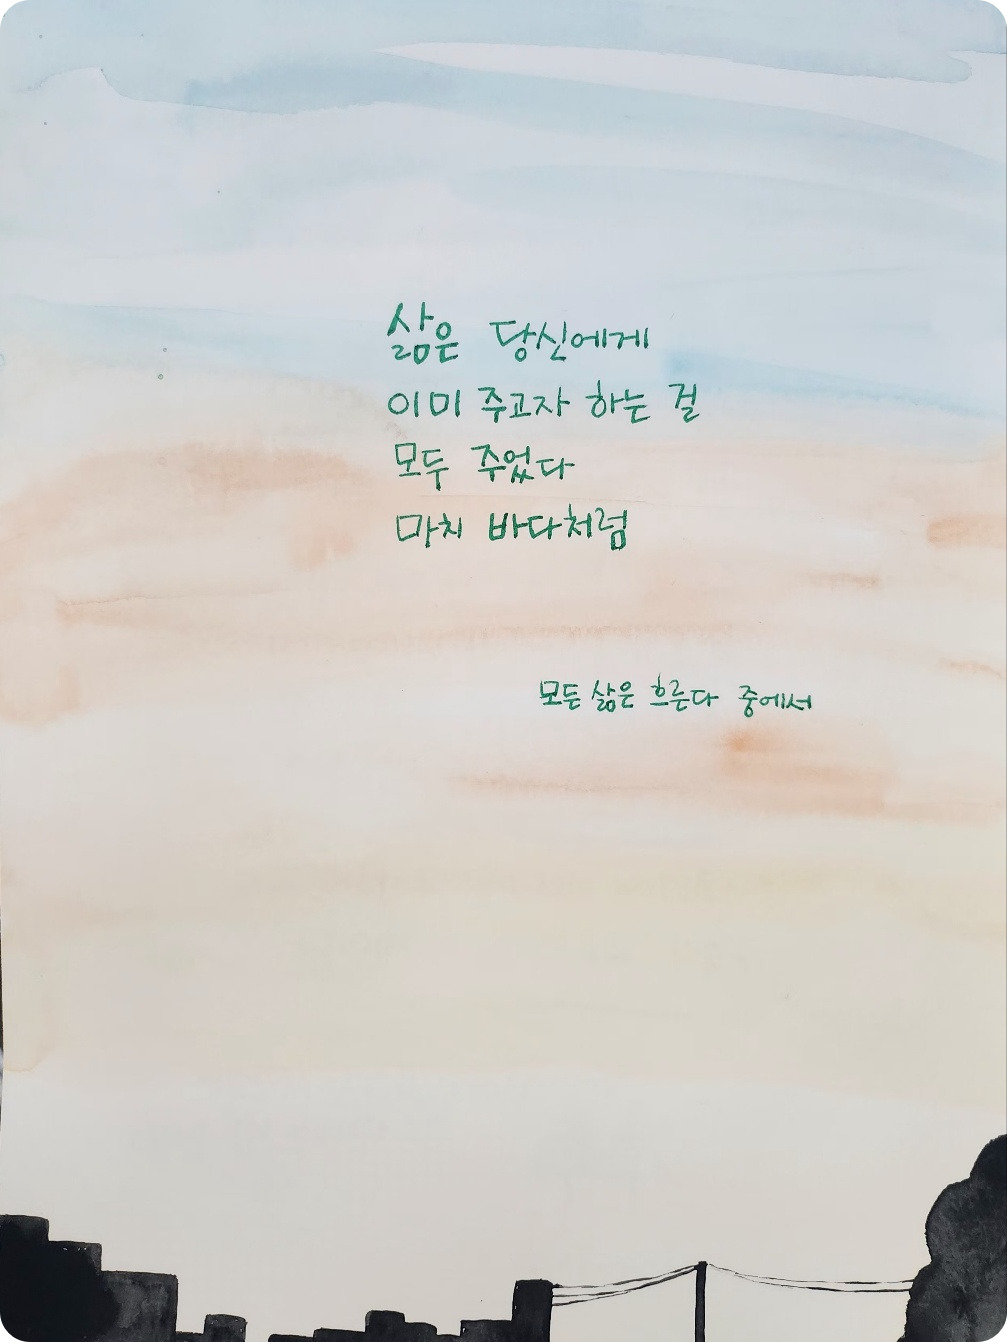 삶은 당신에게
이미 주고자 하는 걸
모두 주었다
마치 바다처럼
모든 삶은 흐른다 중에서